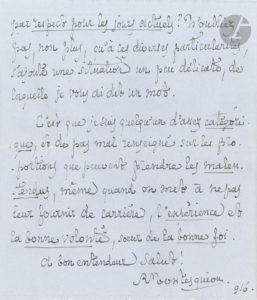 par respect pour les jours actuels ? N'oubliez
pas, non plus, qu'à ces diverses particularités,
s'ajoute une situation un peu délicate, de
laquelle je vous ai dit un mot.
C'est que je suis quelqu'un d'assez catégori-
que, et de pas mal renseigné sur les pro-
portions que peuvent prendre les malen-
tendus, même quand on met à ne pas
leur fournir de carrière, l'expérience et
la bonne volonté, sœur de la bonne foi.
A bon entendeur Salut !
R Montesquiou.
916.